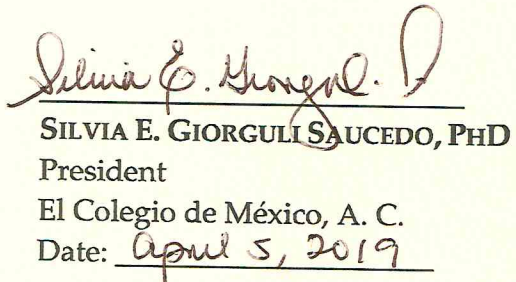 Silvia E. Giorguli S
SILVIA E. GIORGULI SAUCEDO, PHD
President
El Colegio de México, A. C.
Date: April 5, 2019